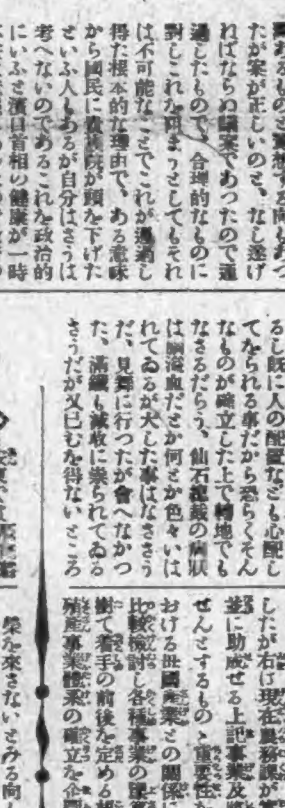 たが案が正しいのと、なし遂げ
ればならぬ議案であつたので通
過したもので、合理的なものに
對しこれを阻まうとしてもそれ
は不可能なことでこれが通過し
得た根本的な理由で、ある意味
から國民に貴族院が頭を下げた
といふ人もあるが自分はさうは
考へないのであるこれを政治的
にいふと濱口首相の健康が一時
るし既に人の配置なども心配し
てをられる事だから恐らくそん
なものが確立した上で轉地でも
なさるだらう、仙石總裁の病狀
は腦溢血だとか何とか色々いは
れてゐるが大した事はなささう
だ、見舞に行つたが會へなかつ
た、滿鐵も減收に祟られてゐる
さうだが又已むを得ないところ
したが右は現在農務課が
並に助成せる上記事業及
ぜんとするものゝ重要性
おける母國產業との關係に
比較檢討し各種事業の
樹て着手の前後を定める
殖產事業體系の確立を企
榮を來さないとみる向